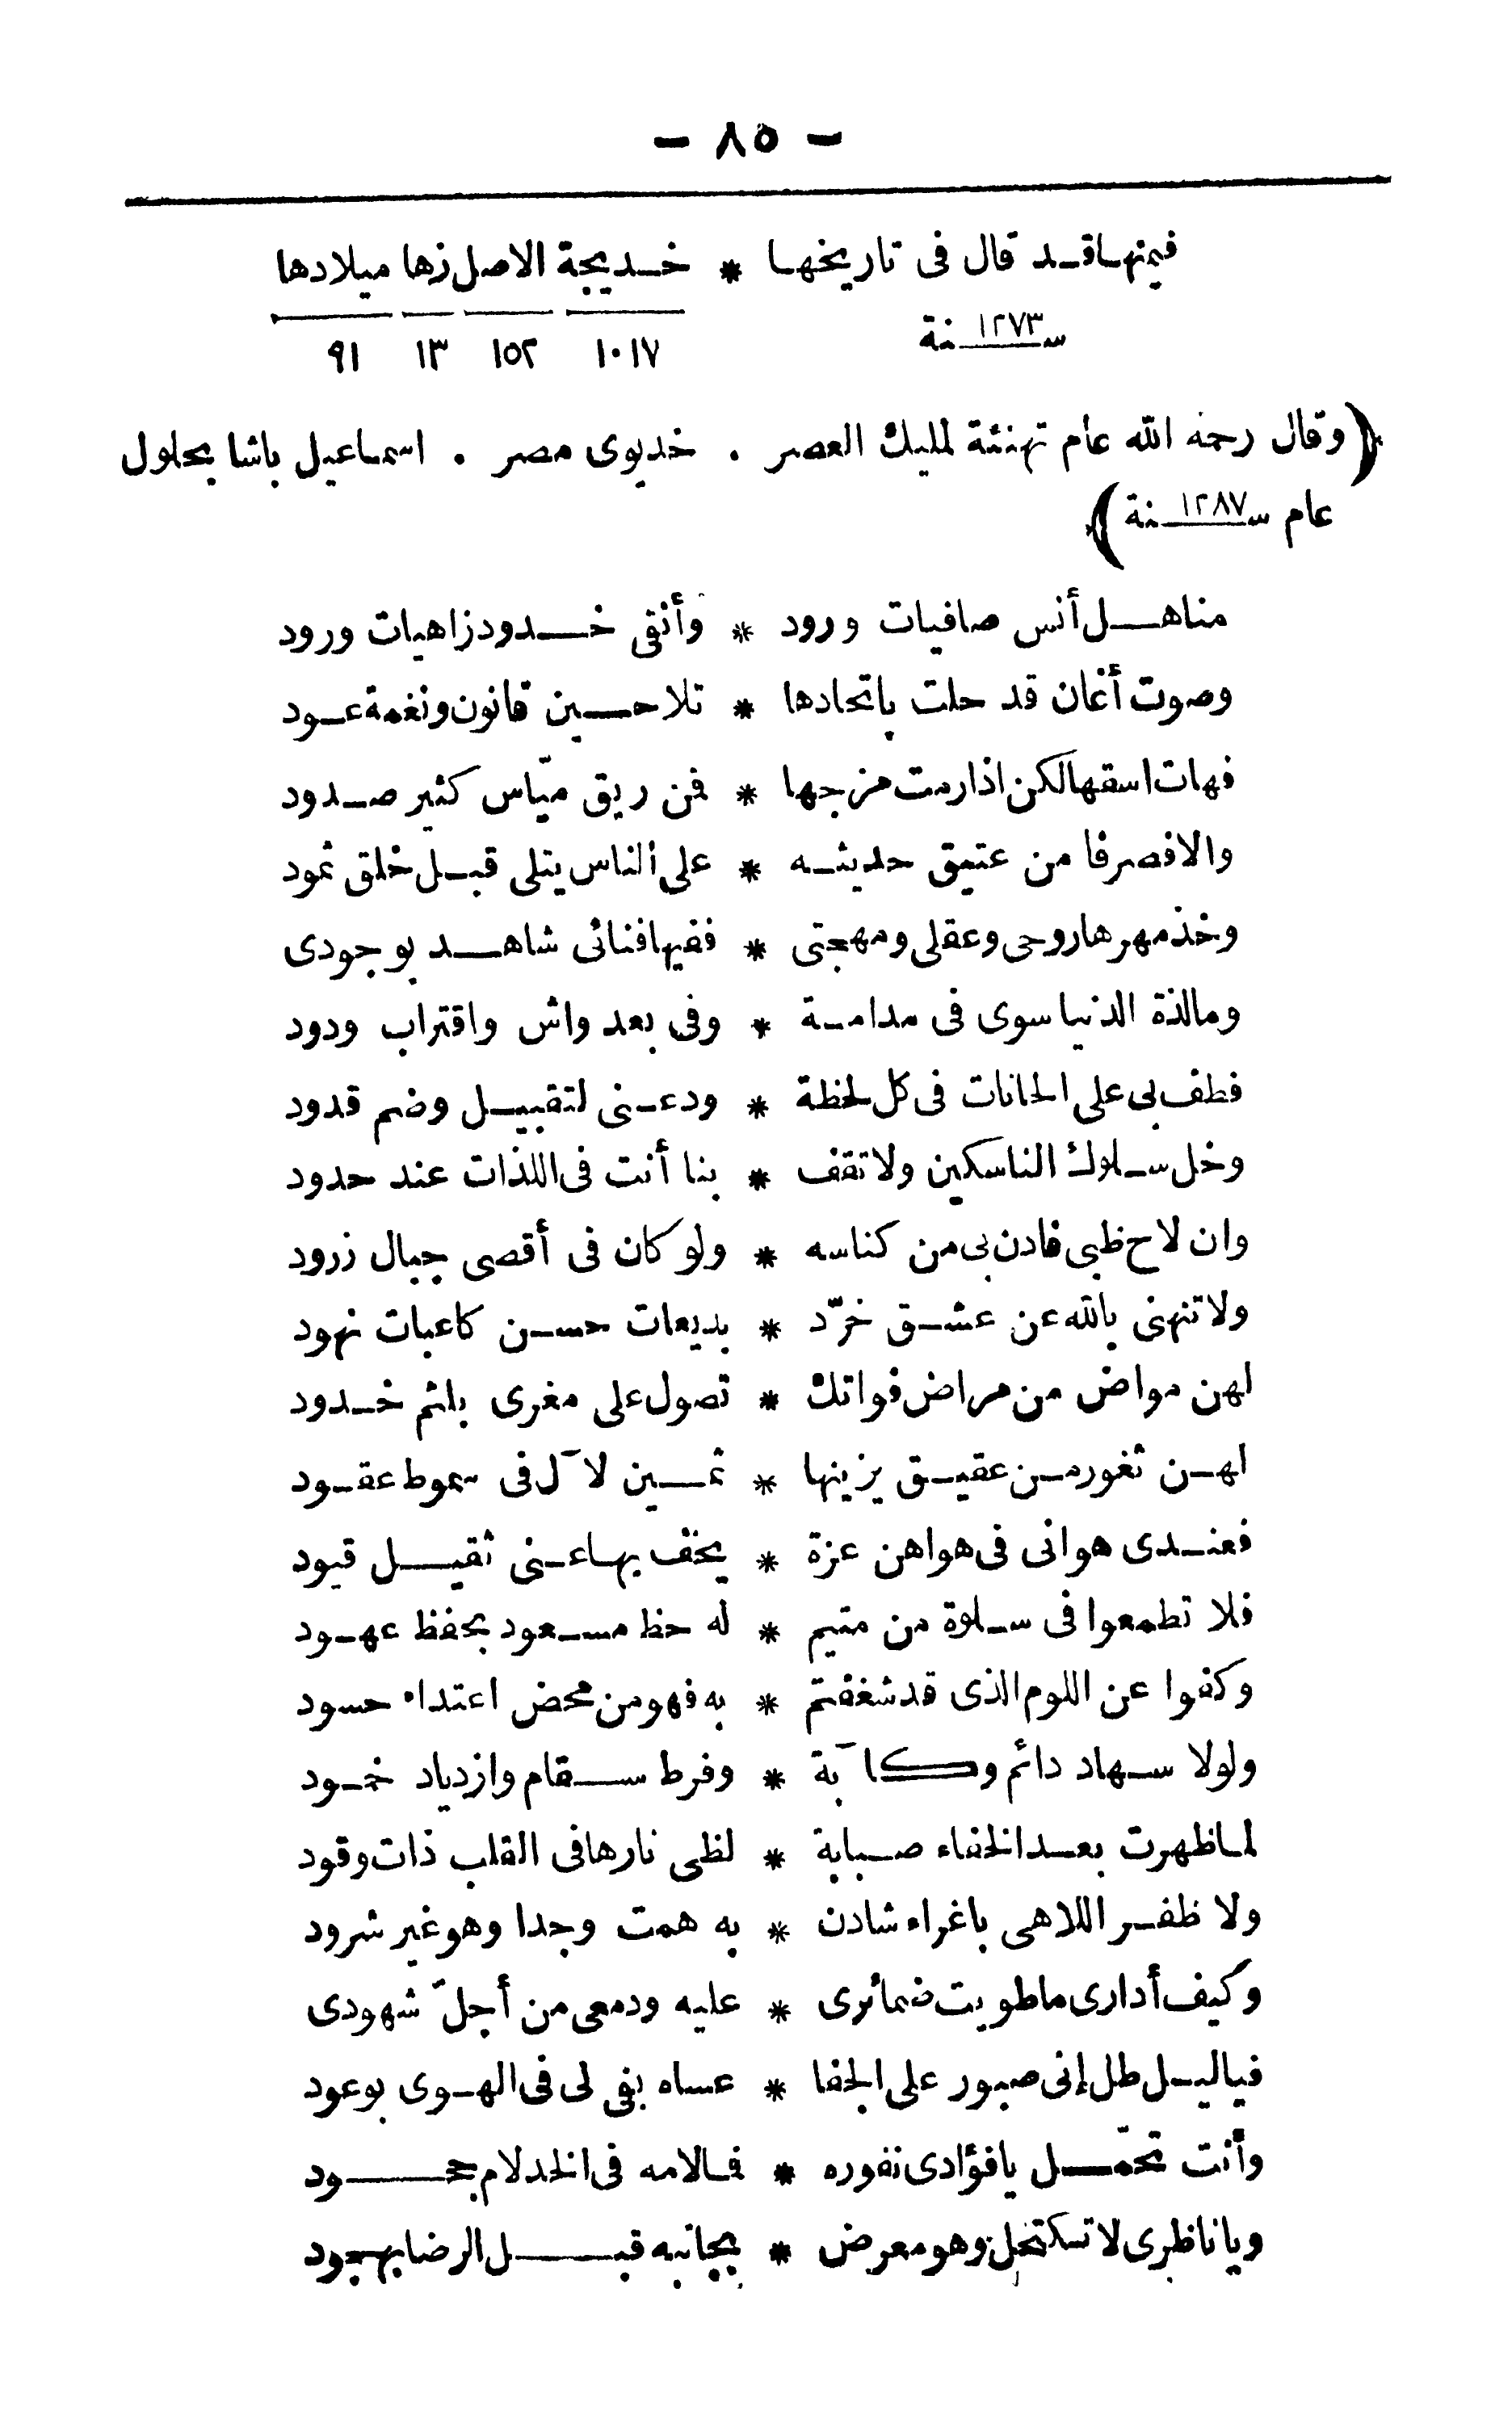 - ٨٥ -
فيمنها قد قال فى تاريخها * خديجة الاصل زها ميلادها
سنة ١٢٧٣
١٠١٧ ١٥٢ ١٣ ٩١
﴿وقال رحمه الله عام تهنئة لمليك العصر . خديوى مصر . اسماعيل باشا بحلول
عام سنة ١٢٨٧﴾
مناهل أنس صافيات ورود * وأنقى خدود زاهيات ورود
وصوت أغان قد حلت باتحادها * تلاحين قانون ونغمة عود
فهات اسقها لكن اذا رمت مزجها * فمن ريق ميّاس كثير صدود
والا فصرفا من عتيق حديثه * على الناس يتلى قبل خلق ثمود
وخذ مهرها روحى وعقلى ومهجتى * ففيها فنائى شاهد بوجودى
وما لذة الدنيا سوى فى مدامة * وفى بعد واش واقتراب ودود
فطف بى على الحانات فى كل لحظة * ودعنى لتقبيل وضم قدود
وخل سلوك الناسكين ولا تقف * بنا أنت فى اللذات عند حدود
وان لاح ظبى فادن بى من كناسه * ولو كان فى أقصى جبال زرود
ولا تنهنى بالله عن عشق خرّد * بديعات حسن كاعبات نهود
لهن مواض من مراض فواتك * تصول على مغرى بلثم خدود
لهن ثغور من عقيق يزينها * ثمين لآل فى سموط عقود
فعندى هوانى فى هواهن عزة * يخف بها عنى ثقيل قيود
فلا تطمعوا فى سلوة من متيم * له حظ مسعود بحفظ عهود
وكفوا عن اللوم الذى قد شغفتم * به فهو من محض اعتداء حسود
ولولا سهاد دائم وكآبة * وفرط سقام وازدياد خمود
لما ظهرت بعد الخفاء صبابة * لظى نارها فى القلب ذات وقود
ولا ظفر اللاهى باغراء شادن * به همت وجدا وهو غير شرود
وكيف أدارى ما طويت ضمائرى * عليه ودمعى من أجلّ شهودى
فيا ليل طل إنى صبور على الجفا * عساه يفى لى فى الهوى بوعود
وأنت تحمّل يا فؤادى نفوره * فما لامه فى الخد لام جحود
ويا ناظرى لا تكتحل وهو معرض * بجانبه قبل الرضا بهجود